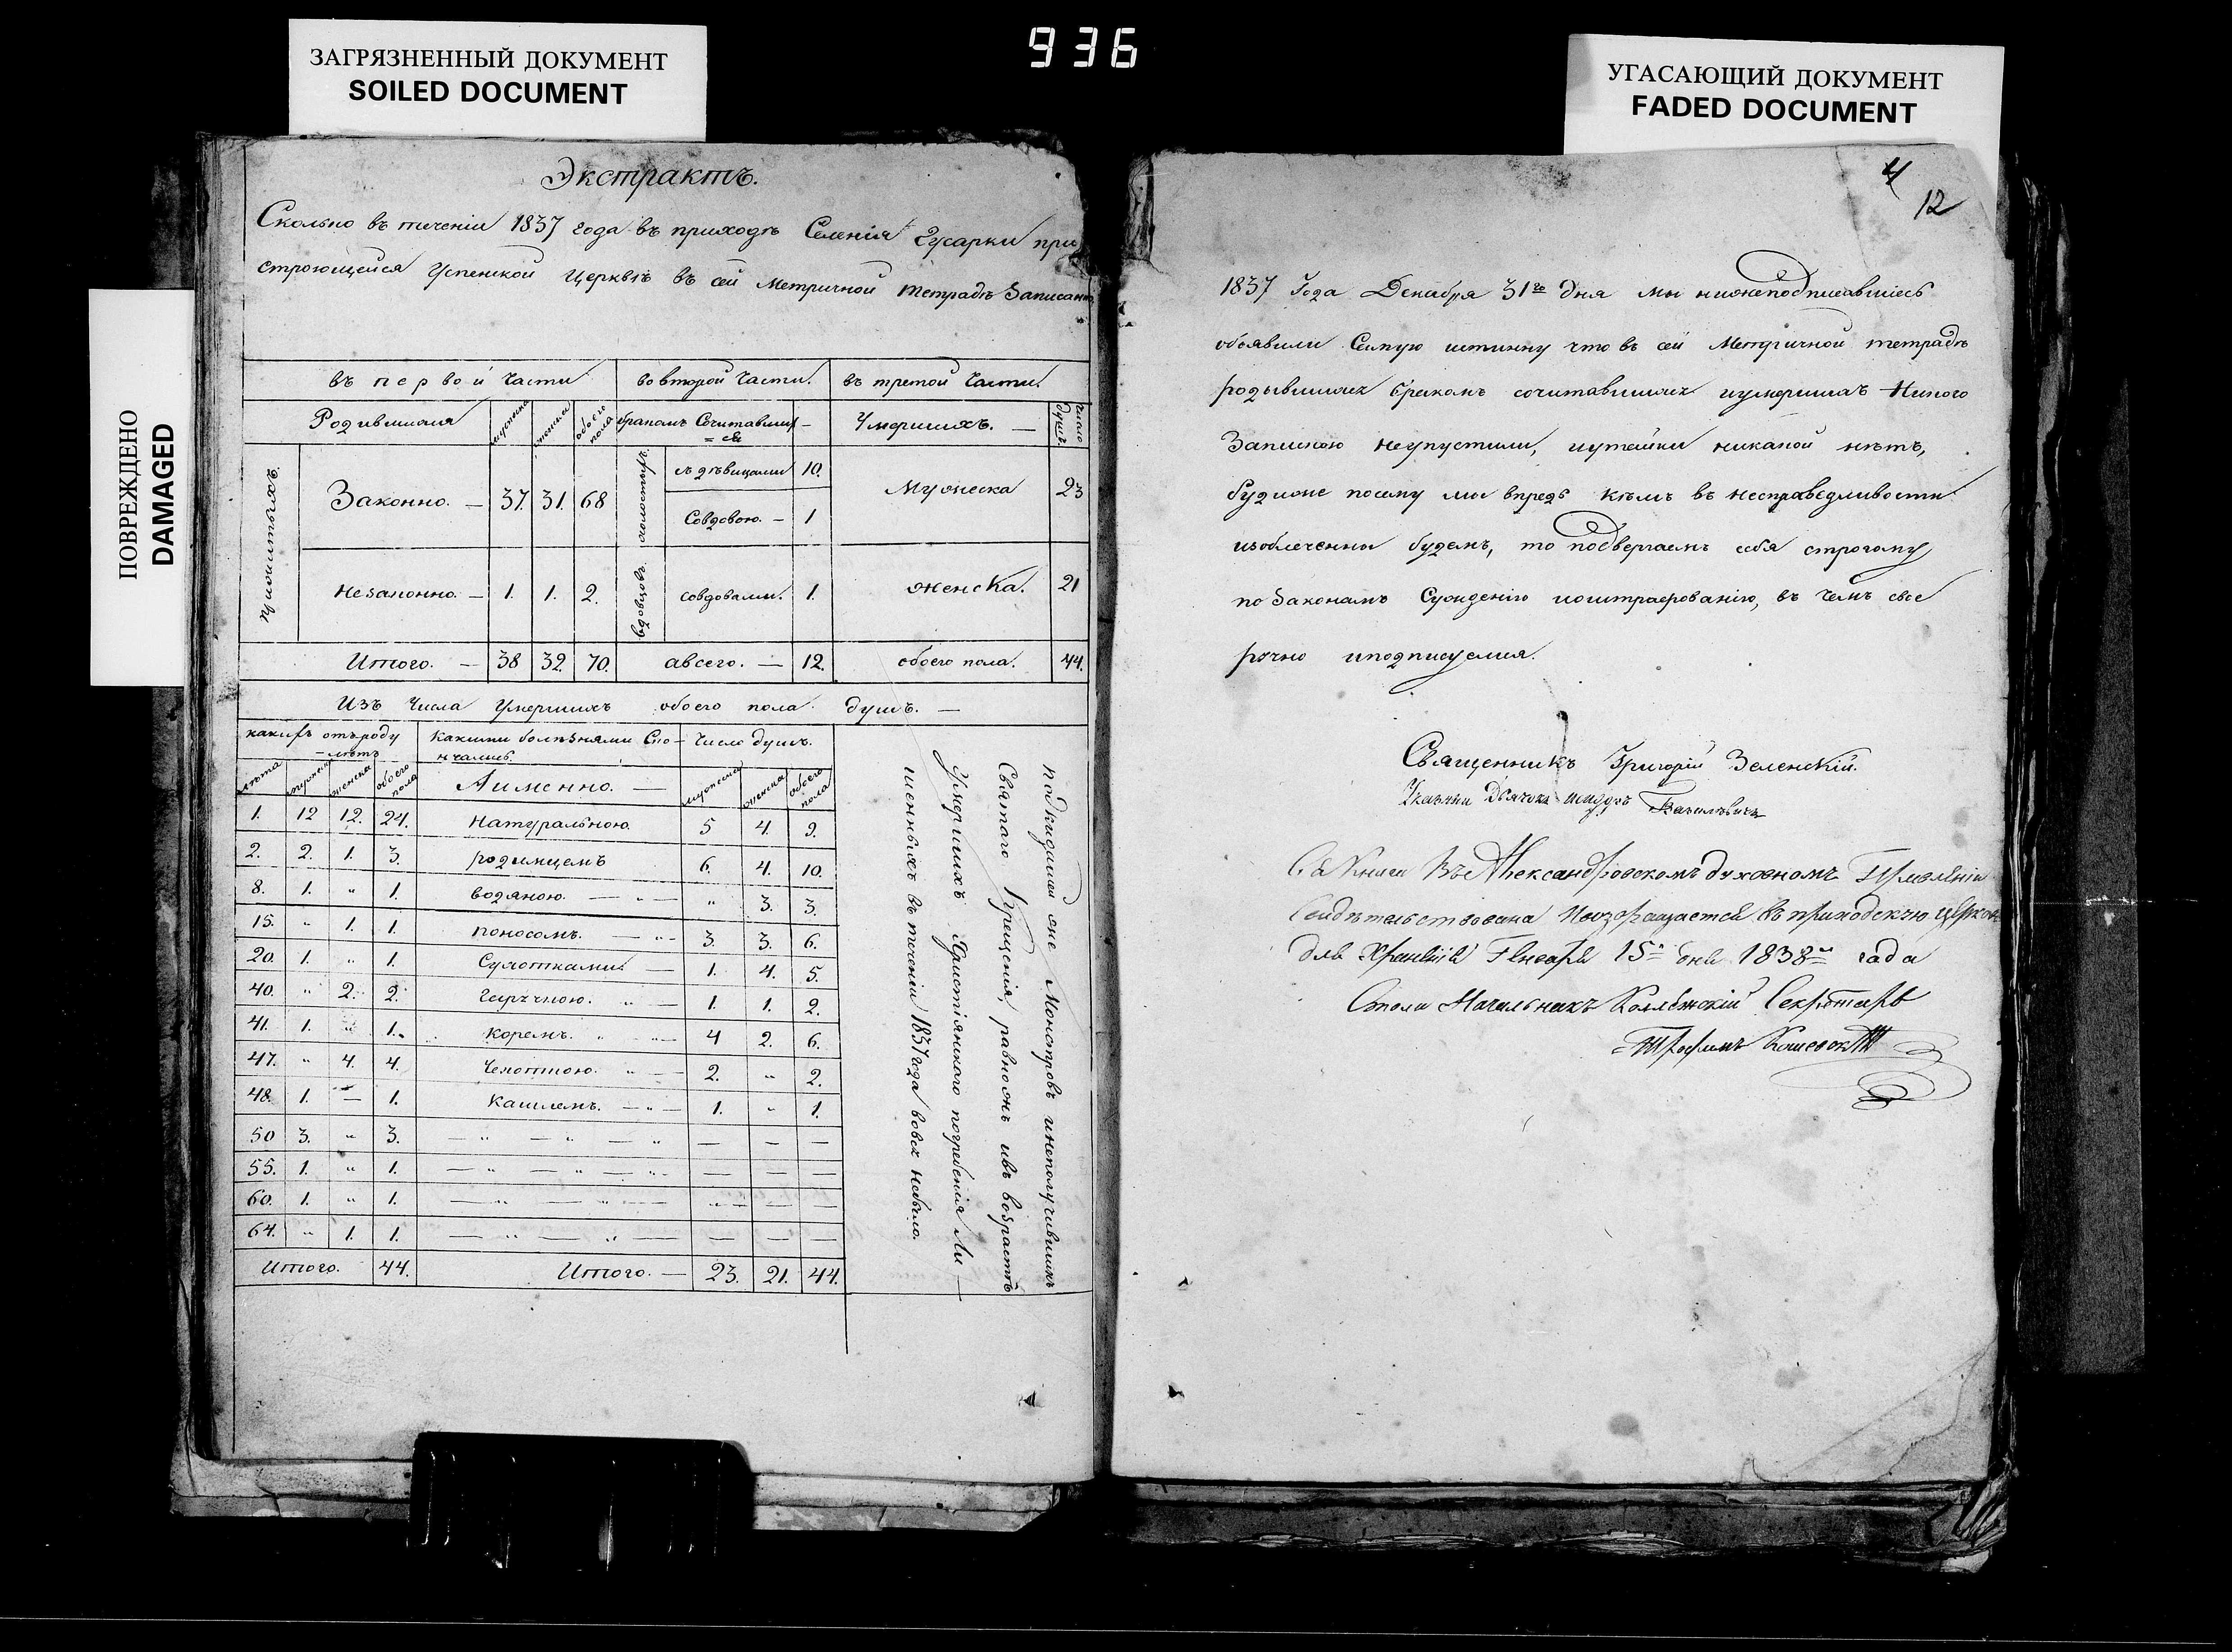 936
ЗАГРЯЗНЕННЫЙ ДОКУМЕНТ
SOILED DOCUMENT
УГАСАЮЩИЙ ДОКУМЕНТ
FADED DOCUMENT
ПОВРЕЖДЕНО
DAMAGED
Экстрактъ.
Сколько въ теченіи 1837 года въ приходѣ Селенія Гусарки при
строющейся Успенской Церквѣ въ сей Метричной тетрадѣ Записано
въ первой части во второй части. въ третой части.
Родившихся мужеска женска обоего пола бракомъ Сочитавших=ся Умершихъ. — число душъ
Законно. — 37. 31. 68 холостыхъ съ дѣвицами 10. Мужеска 23
Совдовою. — 1
Незаконно. — 1. 1. 2. вдовцовъ совдовами. 1. женска. 21
Итого. — 38 32. 70. авсего. — 12. обоего пола. 44.
Изъ Числа Умершихъ обоего пола душъ. —
какихъ отъроду какими болѣзнями Ско- Число душъ.
—лѣтъ нчались.
лѣта мужеска женска обоего пола Аименно. — мужеска женска обоего пола
1. 12 12. 24. Натуральною. 5 4. 9.
2. 2. 1. 3. родимцемъ 6. 4. 10.
8. 1. " 1. водяною. — " — " 3. 3.
15. " 1. 1. поносомъ. — " — 3. 3. 6.
20. 1. " 1. Сухотками. — 1. 4. 5.
40. " 2. 2. Горячною. " — 1. 1. 2.
41. 1. " 1. коремъ. " — 4 2. 6.
47. " 4. 4. Чехотною. " — 2. " 2.
48. 1. — 1. кашлемъ. — " — 1. " 1.
50 3. " 3. — " — " — " — — —
55. 1. " 1. — " — " — " — — — —
60. 1. " 1. — " — " — " — — —
64. " 1. 1. — " — " — — — —
Итого. 44. Итого. — 23. 21. 44.
подкидышей онс Монстровъ инеполучившихъ
Святаго Крещенія, равно онъ ивъ возрастѣ
Умершихъ Христіянскаго погребенія Ли —
шенныхъ въ теченіи 1837 года вовсе небыло.
4
12
1837 Года Декабря 31го дня мы нижеподписавшіесь
обявили Самую истинну что въ сей Метричной тетрадѣ
родывшихся бракомъ сочитавшихся иумершихъ Никого
Запискою неупустили, иутайки никакой нѣтъ,
будиже посему мы впредь кѣмъ въ несправедливости
изобличенни будемъ, то подвергаемъ себя строгому
по Законамъ Сужденію иоштрафованію, въ чемъ свое
ручно иподписуемся.
Священникъ Григорій Зеленскій.
Указный Дьячокъ
Сія Книга Въ Александровскомъ духовномъ Правленіи
Свидѣтельствована Ивозвращается въ приходскую Церковь
для Храненія Генваря 15 дня 1838 года
Стола Начальникъ Коллежскій Секретарь
Трофимъ